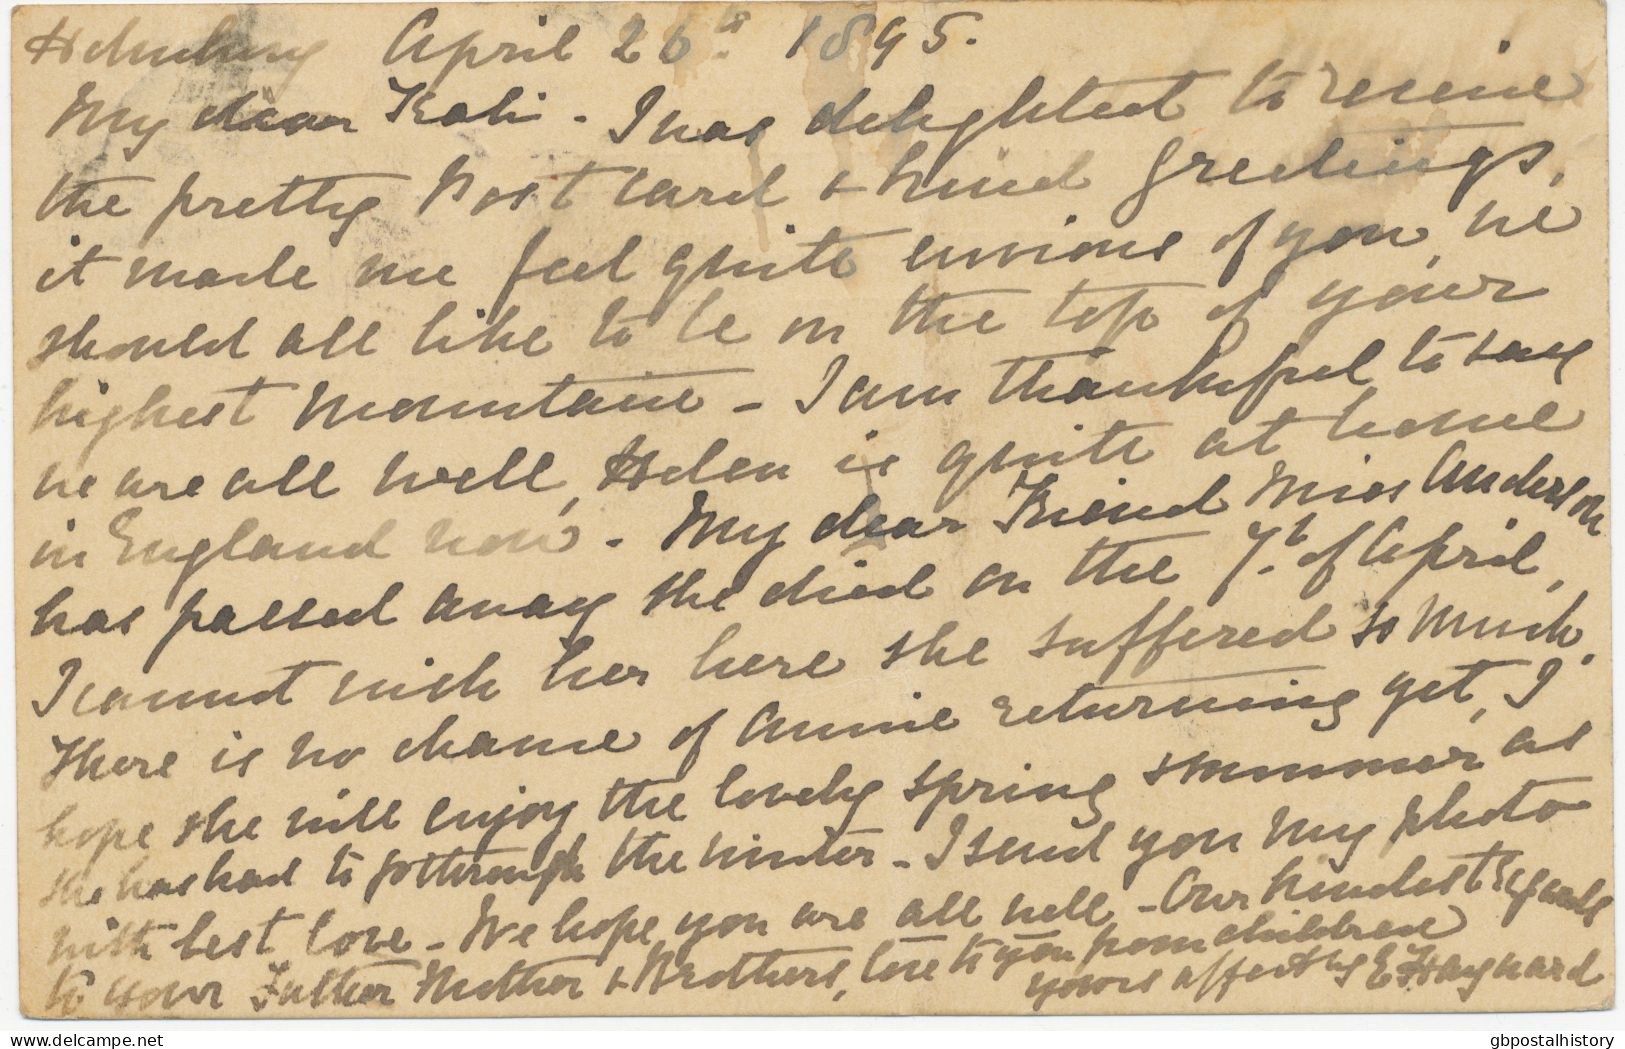 April 26th 1895.
My dear Kati - I was delighted to receive
the pretty Post Card & kind greetings,
it made me feel quite envious of you, we
should all like to be on the top of your
highest Mountain - I am thankful to say
we are all well, Helen is quite at home
in England now - My dear Friend Miss Anderson
has passed away she died on the 7th of April,
I cannot wish her here she suffered so much.
There is no chance of Annie returning yet, I
hope she will enjoy the lovely spring & summer as
she has had to go through the winter - I send you my photo
with best love - We hope you are all well - Our kindest regards
to your Father Mother & Brothers, love to you from children
yours affectly E Hayward
gbpostalhistory